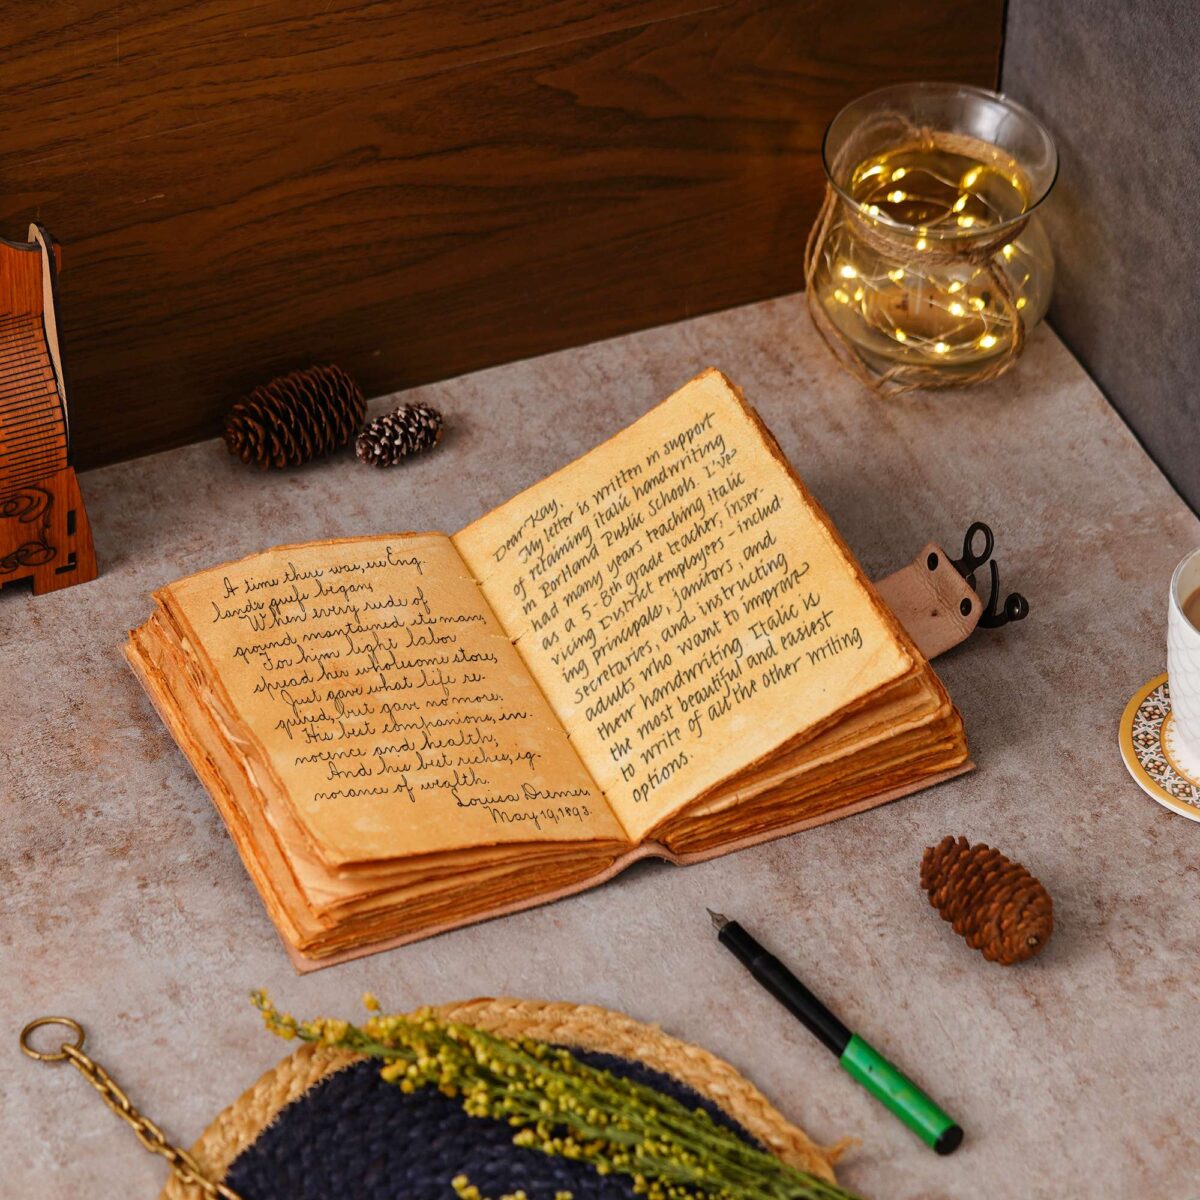 A time there was, ere Eng-
lands griefs began,
When every rude of
ground maintained its man;
For him light labor
spread her wholesome store,
Just gave what life re-
quired, but gave no more.
His best companions, in-
nocence and health;
And his best riches, ig-
norance of wealth.
Louisa
May 19, 1893.
Dear Kay,
My letter is written in support
of retaining italic handwriting
in Portland Public Schools. I've
had many years teaching italic
as a 5-8th grade teacher, inser-
vicing District employees - includ
ing principals, janitors, and
secretaries, and instructing
adults who want to improve
their handwriting. Italic is
the most beautiful and easiest
to write of all the other writing
options.